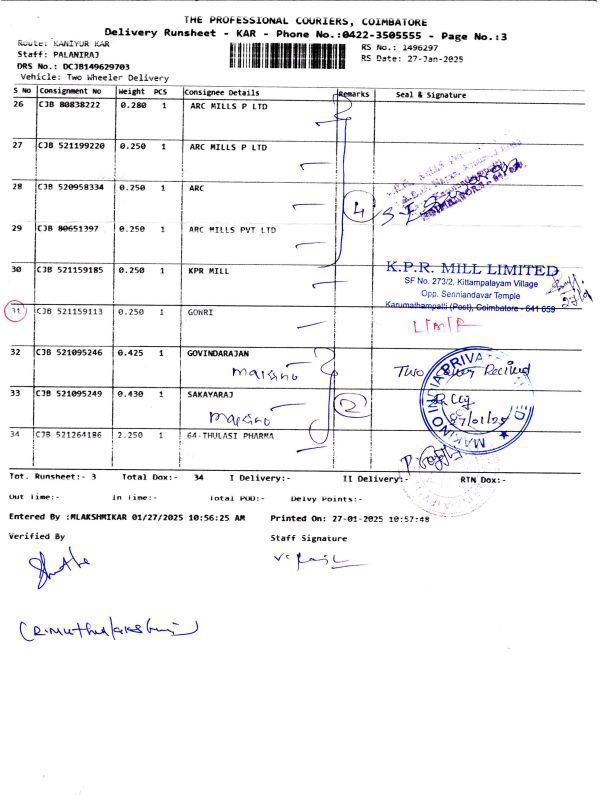 THE PROFESSIONAL COURIERS, COIMBATORE
Delivery Runsheet - KAR - Phone No.:0422-3505555 - Page No.:3
Route: KANIYUR KAR
RS No.: 1496297
Staff: PALANIRAJ
RS Date: 27-Jan-2025
DRS No.: DCJB149629703
Vehicle: Two Wheeler Delivery
S No Consignment No Weight PCS Consignee Details Remarks Seal & Signature
26 CJB 80838222 0.280 1 ARC MILLS P LTD
27 CJB 521199220 0.250 1 ARC MILLS P LTD
28 CJB 520958334 0.250 1 ARC
4
29 CJB 80651397 0.250 1 ARC MILLS PVT LTD
30 CJB 521159185 0.250 1 KPR MILL
K.P.R. MILL LIMITED
SF No. 273/2, Kittampalayam Village
Opp. Senniandavar Temple
Karumathampatti (Post), Coimbatore - 641 659
31 CJB 521159113 0.250 1 GOWRI
32 CJB 521095246 0.425 1 GOVINDARAJAN
Two
MAKINO INDIA PRIVATE
27/01/25
33 CJB 521095249 0.430 1 SAKAYARAJ
2
34 CJB 521264186 2.250 1 64-THULASI PHARMA
Tot. Runsheet:- 3 Total Dox:- 34 I Delivery:- II Delivery:- RTN Dox:-
Out Time:- In Time:- Total POD:- Delvy Points:-
Entered By :MLAKSHMIKAR 01/27/2025 10:56:25 AM Printed On: 27-01-2025 10:57:48
Verified By Staff Signature